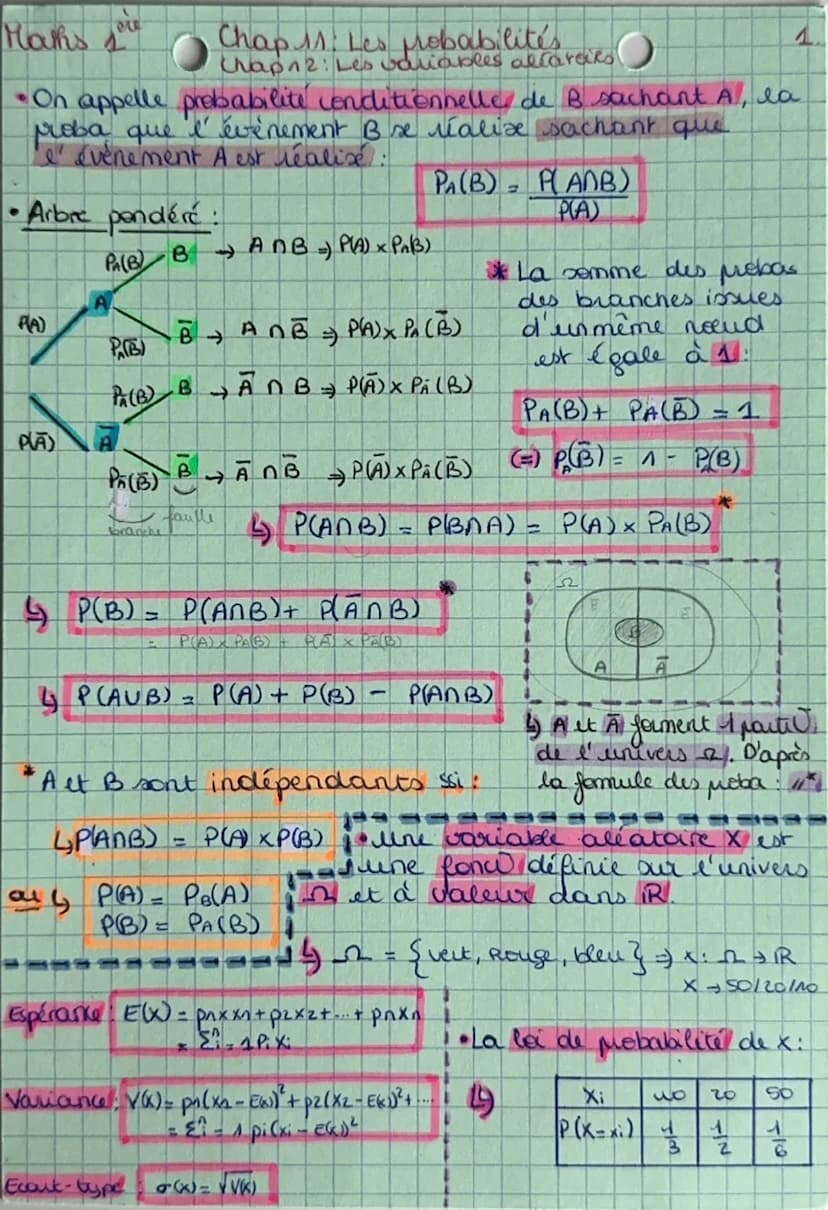 Maths 1ère
Chap 11: Les probabilités
Chap 12: Les variables aléatoires
1
• On appelle probabilité conditionnelle de B sachant A, la
proba que l'évènement B se réalise sachant que
l'évènement A est réalisé :
PA(B) = P(A∩B) / P(A)
• Arbre pondéré :
P(A)
A
PA(B)
B → A ∩ B ⇒ P(A) × PA(B)
PA(B̄)
B̄ → A ∩ B̄ ⇒ P(A) × PA(B̄)
P(Ā)
Ā
PĀ(B)
B → Ā ∩ B ⇒ P(Ā) × PĀ(B)
PĀ(B̄)
B̄ → Ā ∩ B̄ ⇒ P(Ā) × PĀ(B̄)
branche
feuille
* La somme des probas
des branches issues
d'un même noeud
est égale à 1 :
PA(B) + PA(B̄) = 1
(=) PA(B̄) = 1 - PA(B)
↳ P(A∩B) = P(B∩A) = P(A) × PA(B) *
↳ P(B) = P(A∩B) + P(Ā∩B) *
= P(A) × PA(B) + P(Ā) × PĀ(B)
↳ P(A∪B) = P(A) + P(B) - P(A∩B)
Ω
E
E
B
A
Ā
↳ A et Ā forment 1 partit°
de l'univers Ω. D'après
la formule des proba : "*
* A et B sont indépendants ssi :
↳ P(A∩B) = P(A) × P(B)
ou ↳ P(A) = PB(A)
P(B) = PA(B)
• une variable aléatoire X est
une fonc° définie sur l'univers
Ω et à valeur dans ℝ.
↳ Ω = {vert, rouge, bleu} ⇒ x : Ω → ℝ
X → 50/20/10
Espérance : E(X) = p1x1 + p2x2 + ... + pnxn
= Σⁿi=1 Pi Xi
Variance : V(X) = p1(x1 - E(x))² + p2(x2 - E(x))² + ...
= Σⁿi=1 pi(xi - E(x))²
Ecart-type : σ(x) = √V(X)
• La loi de probabilité de x :
↳
Xi 10 20 50
P(X=xi) 1/3 1/2 1/6